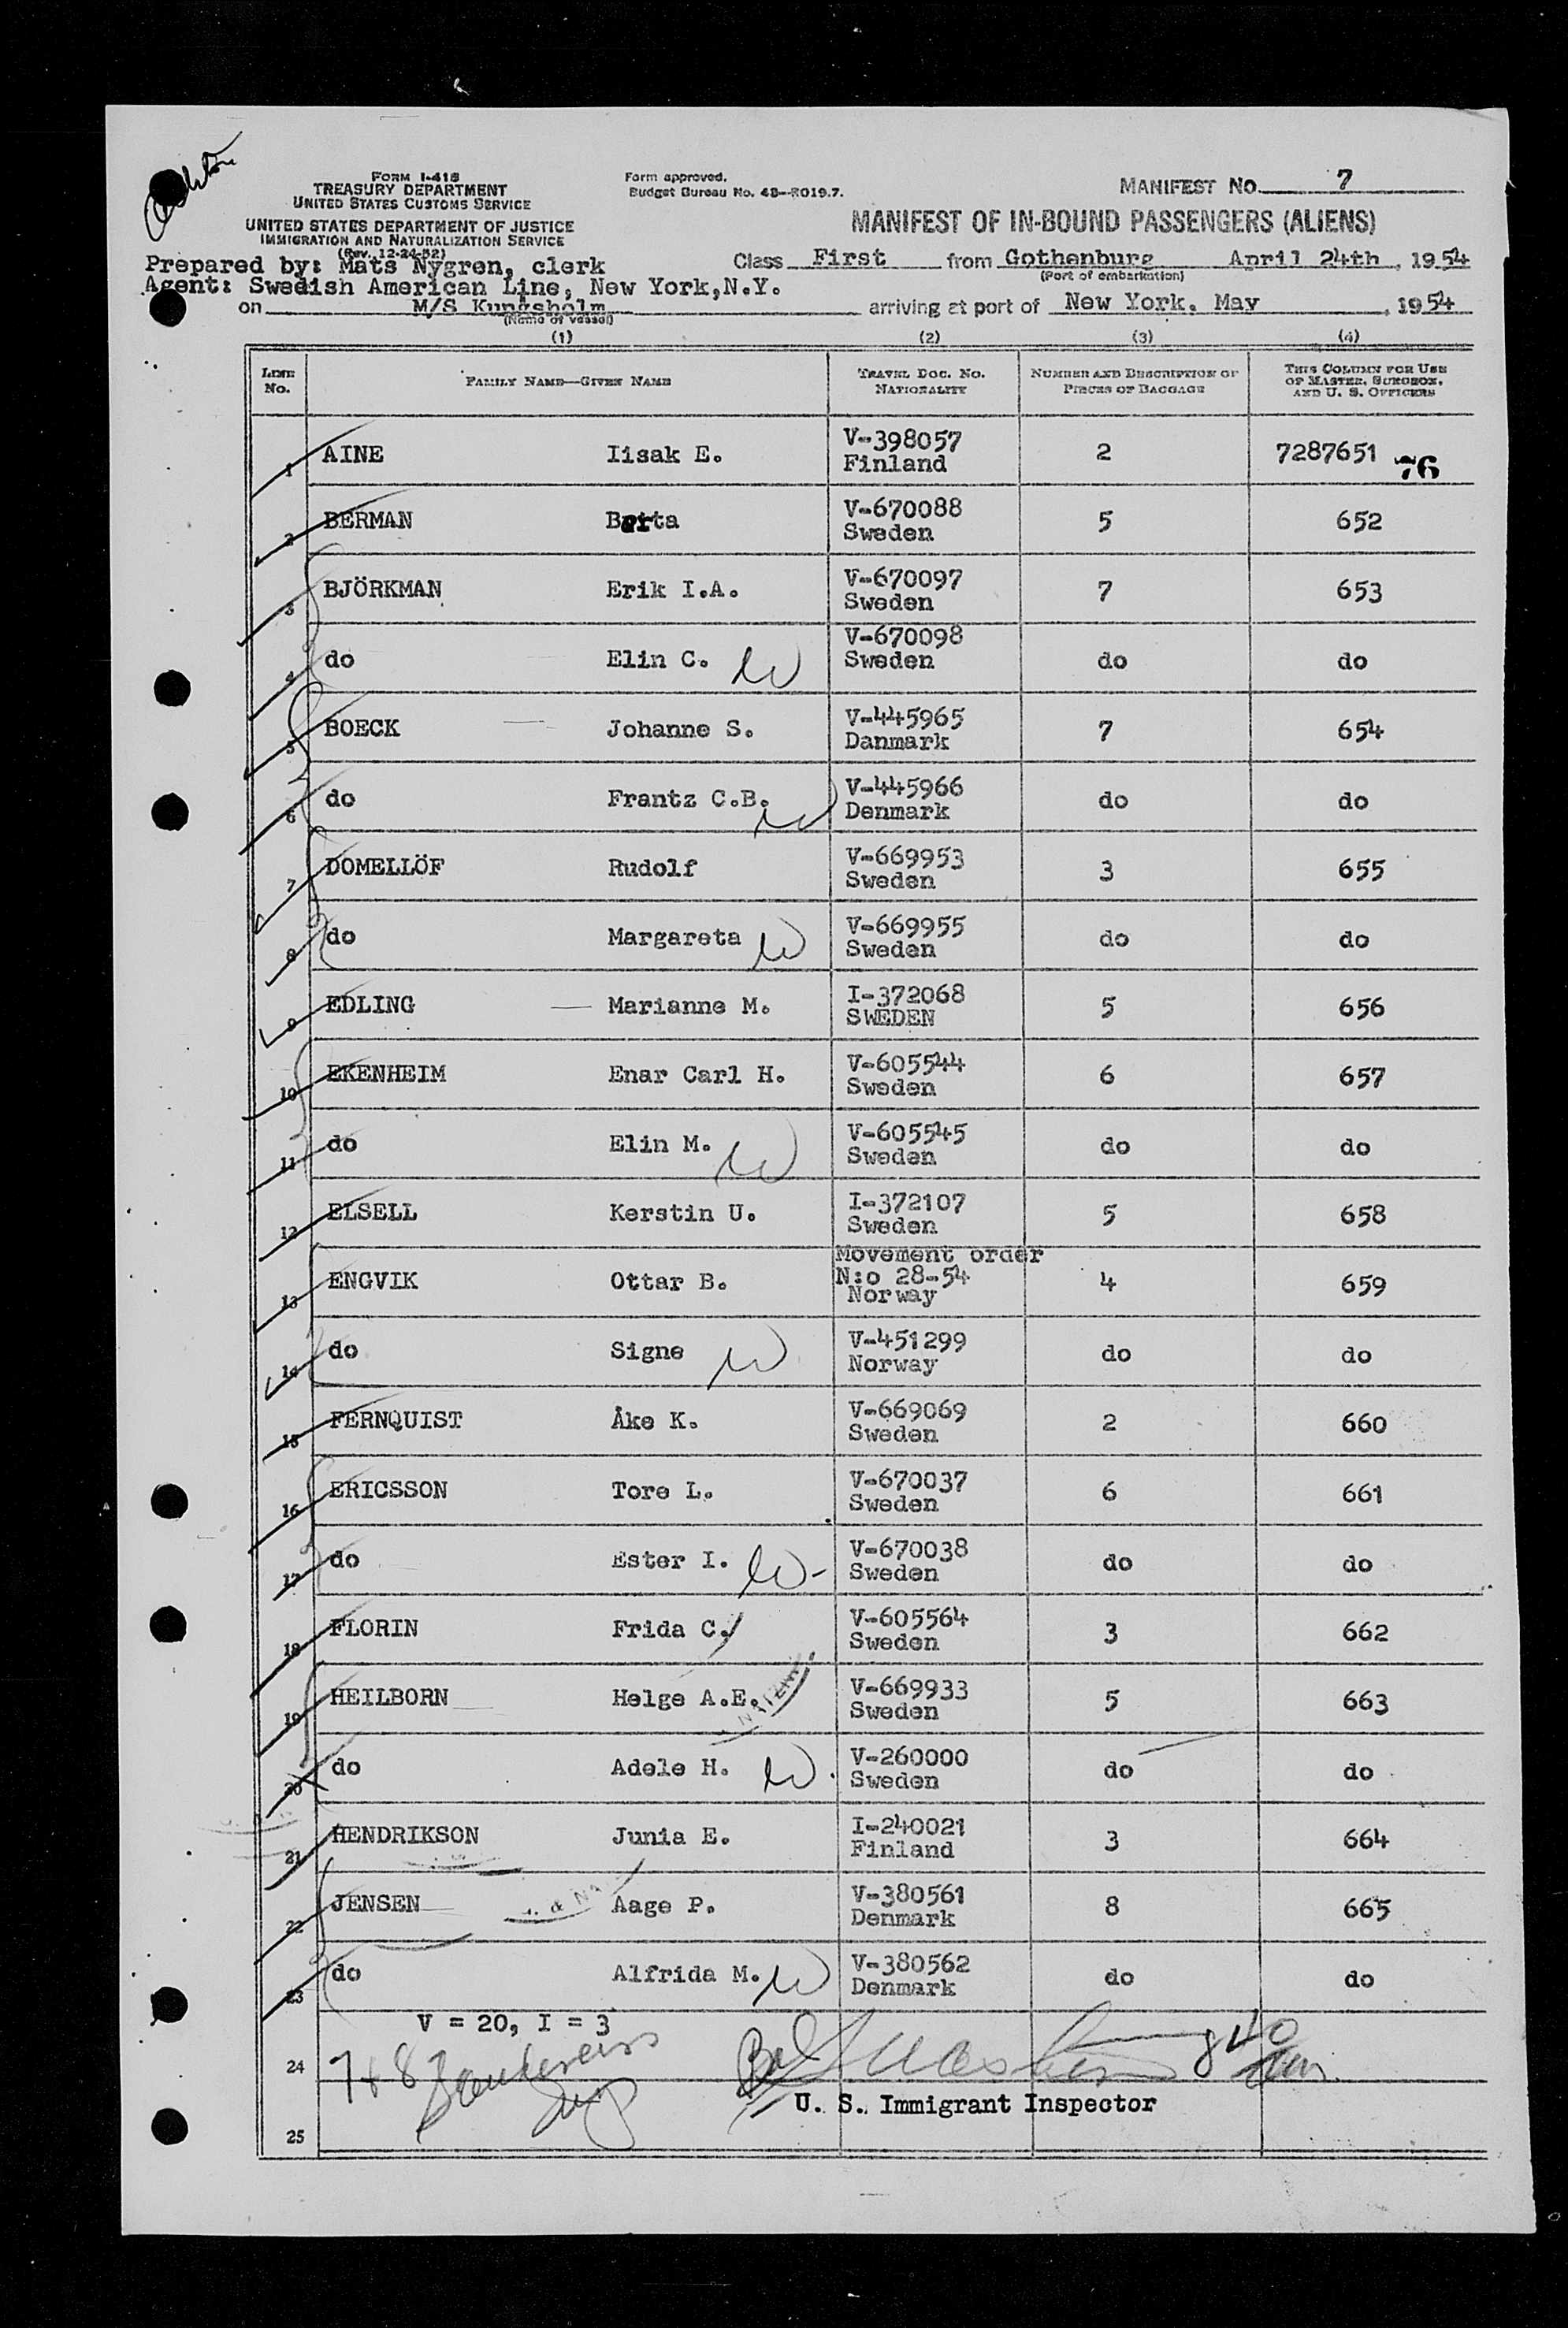 FORM I-418
TREASURY DEPARTMENT
UNITED STATES CUSTOMS SERVICE
UNITED STATES DEPARTMENT OF JUSTICE
IMMIGRATION AND NATURALIZATION SERVICE
(Rev. 12-24-52)
Form approved.
Budget Bureau No. 43-R019.7.
MANIFEST No. 7
MANIFEST OF IN-BOUND PASSENGERS (ALIENS)
Prepared by: Mats Nygren, clerk
Class First from Gothenburg April 24th, 1954
(Port of embarkation)
Agent: Swedish American Line, New York,N.Y.
on M/S Kungsholm arriving at port of New York, May , 1954
(Name of vessel)
(1) (2) (3) (4)
LINE No. FAMILY NAME—GIVEN NAME TRAVEL DOC. No. NATIONALITY NUMBER AND DESCRIPTION OF PIECES OF BAGGAGE THIS COLUMN FOR USE OF MASTER, SURGEON, AND U. S. OFFICERS
1 AINE Iisak E. V-398057 Finland 2 7287651 76
2 BERMAN Berta V-670088 Sweden 5 652
3 BJÖRKMAN Erik I.A. V-670097 Sweden 7 653
4 do Elin C. V-670098 Sweden do do
5 BOECK Johanne S. V-445965 Danmark 7 654
6 do Frantz C.B. V-445966 Denmark do do
7 DOMELLÖF Rudolf V-669953 Sweden 3 655
8 do Margareta V-669955 Sweden do do
9 EDLING Marianne M. I-372068 SWEDEN 5 656
10 EKENHEIM Enar Carl H. V-605544 Sweden 6 657
11 do Elin M. V-605545 Sweden do do
12 ELSELL Kerstin U. I-372107 Sweden 5 658
13 ENGVIK Ottar B. Movement order N:o 28-54 Norway 4 659
14 do Signe V-451299 Norway do do
15 FERNQUIST Åke K. V-669069 Sweden 2 660
16 ERICSSON Tore L. V-670037 Sweden 6 661
17 do Ester I. V-670038 Sweden do do
18 FLORIN Frida C. V-605564 Sweden 3 662
19 HEILBORN Helge A.E. V-669933 Sweden 5 663
20 do Adele H. V-260000 Sweden do do
21 HENDRIKSON Junia E. I-240021 Finland 3 664
22 JENSEN Aage P. V-380561 Denmark 8 665
23 do Alfrida M. V-380562 Denmark do do
V = 20, I = 3
24
U. S. Immigrant Inspector
25